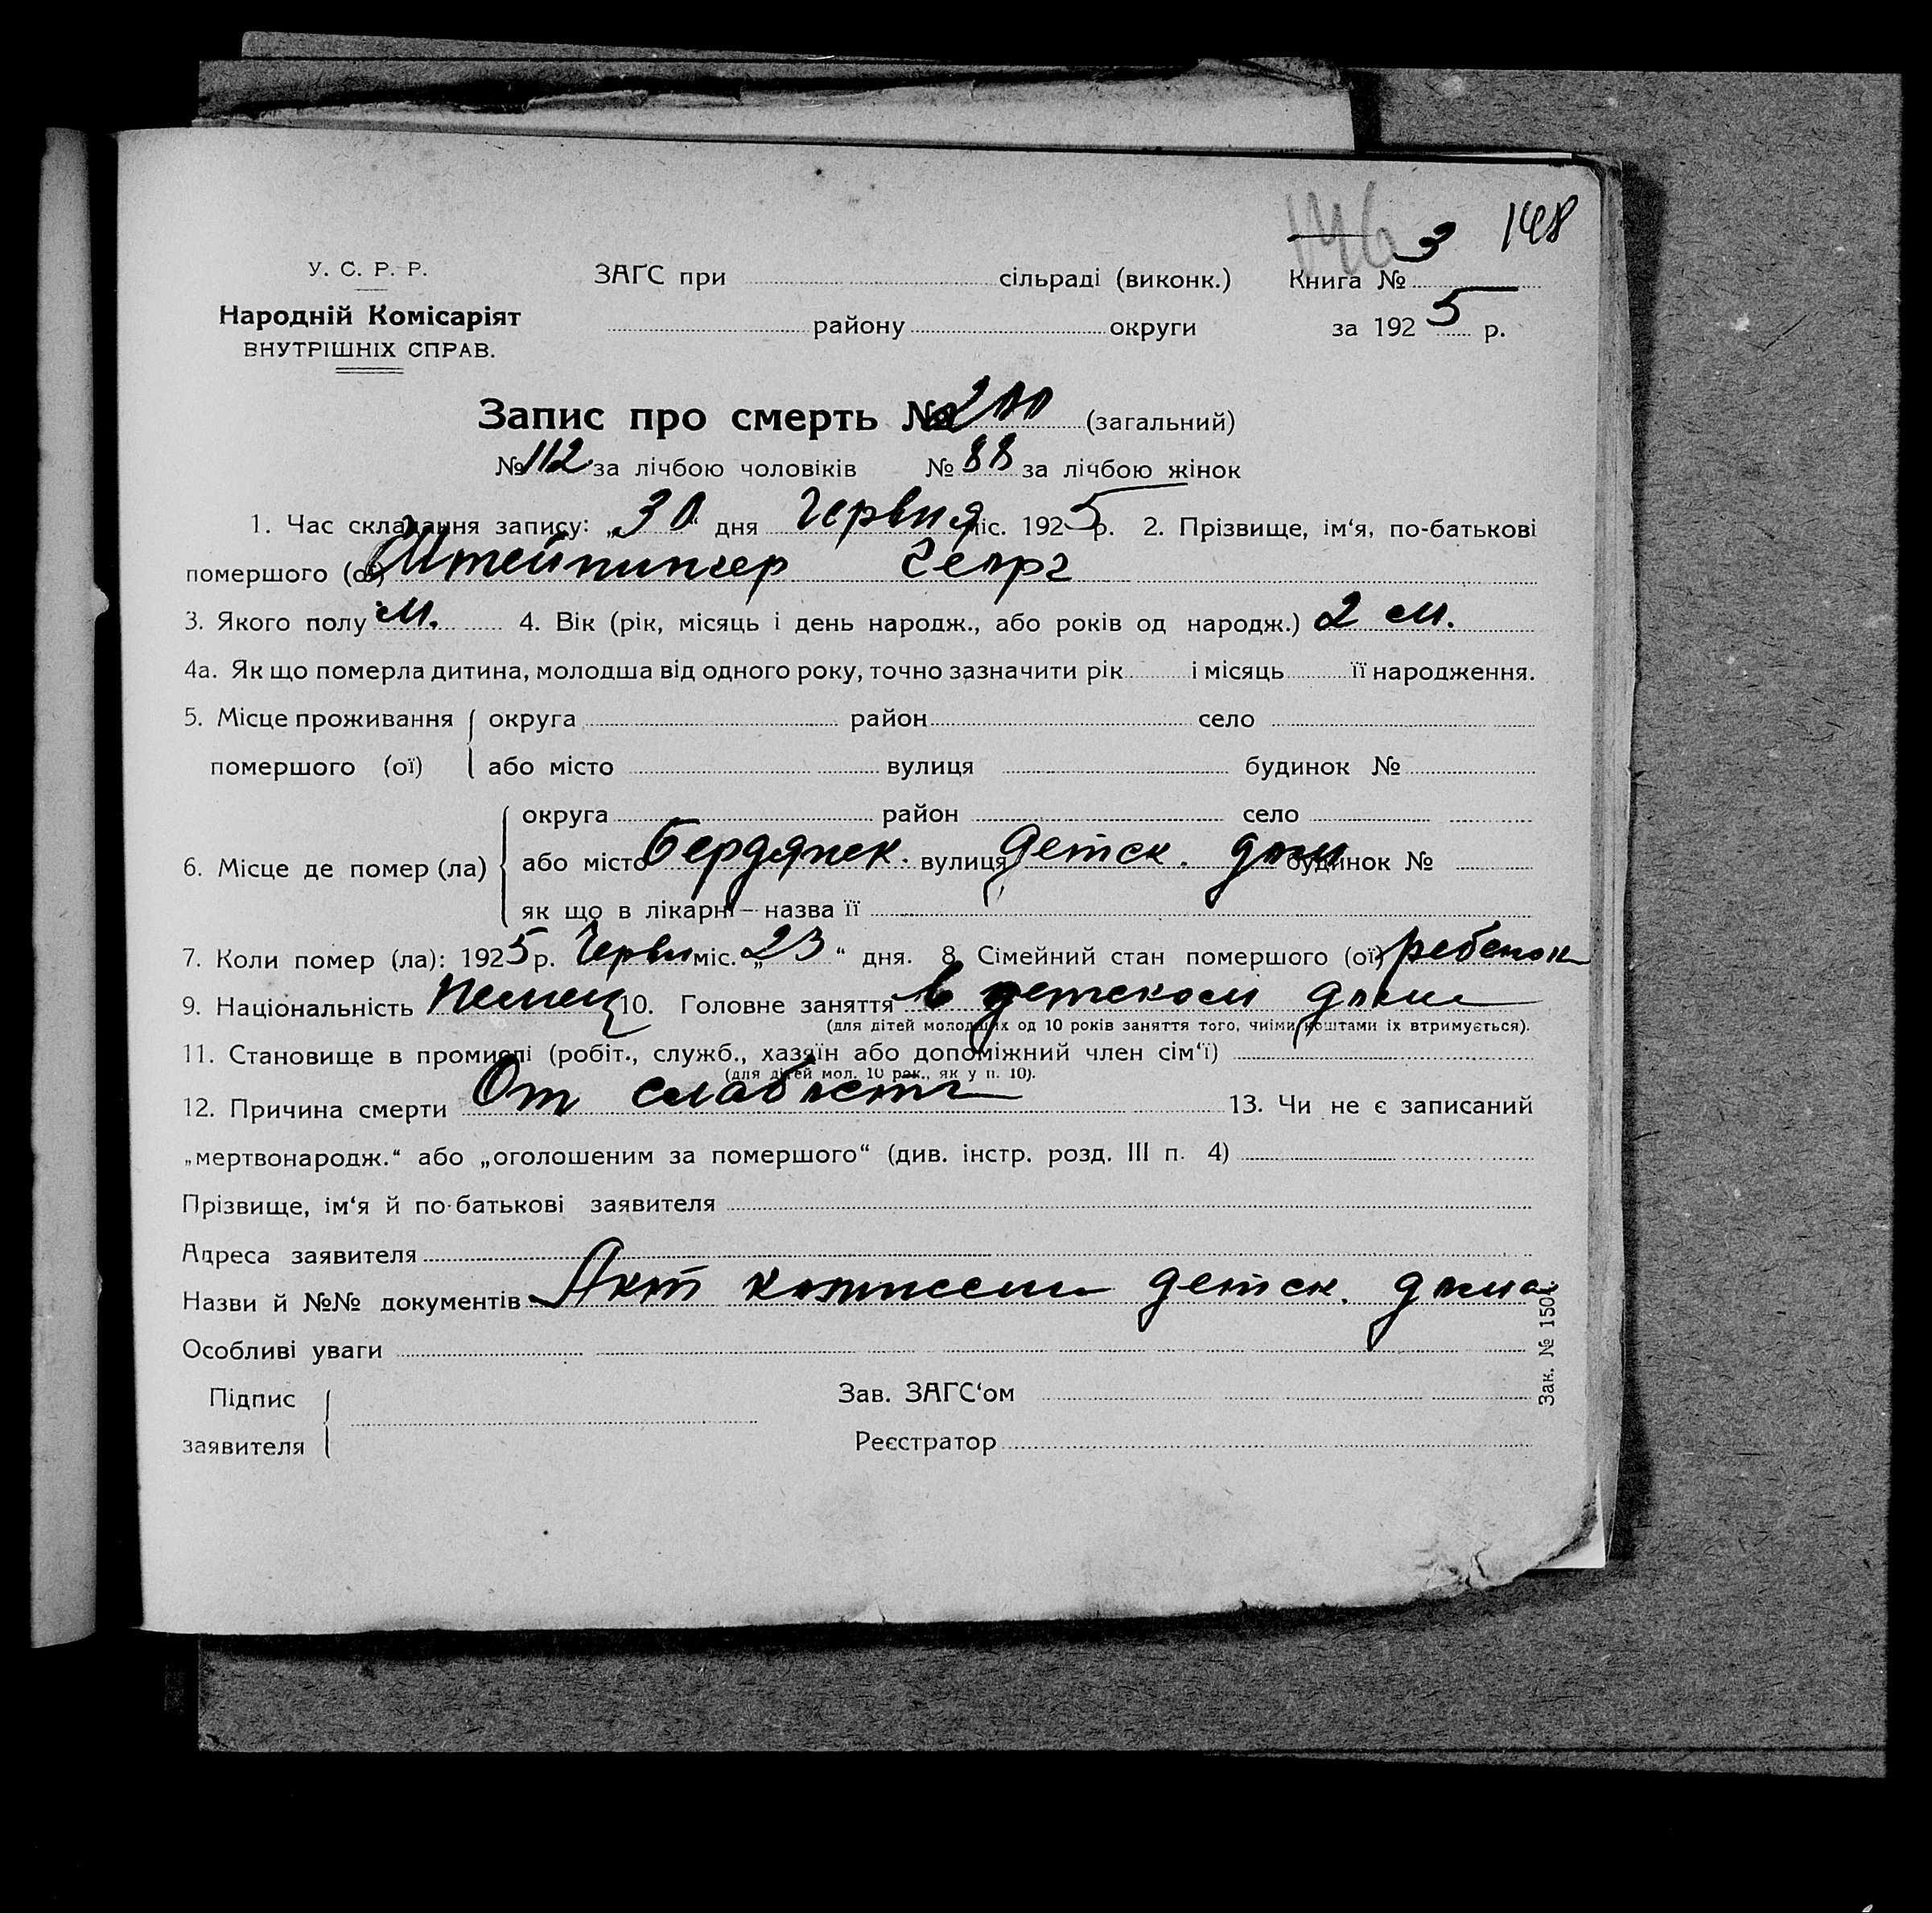 146 3 148
У. С. Р. Р. ЗАГС при сільраді (виконк.) Книга №
Народній Комісаріят району округи за 1925 р.
ВНУТРІШНІХ СПРАВ.
Запис про смерть № 200 (загальний)
№ 112 за лічбою чоловіків № 88 за лічбою жінок
1. Час складання запису: „30“ дня Червня міс. 1925 р. 2. Прізвище, ім‘я, по-батькові
помершого (ої) Штейнингер Георг
3. Якого полу м. 4. Вік (рік, місяць і день народж., або років од народж.) 2 м.
4а. Як що померла дитина, молодша від одного року, точно зазначити рік і місяць її народження.
5. Місце проживання округа район село
помершого (ої) або місто вулиця будинок №
округа район село
6. Місце де помер (ла) або місто Бердянск. вулиця детск. дом будинок №
як що в лікарні — назва її
7. Коли помер (ла): 1925 р. Червн міс. „23“ дня. 8. Сімейний стан помершого (ої) ребенок
9. Національність немец 10. Головне заняття в детском доме
(для дітей молодших од 10 років заняття того, чиїми коштами їх втримується).
11. Становище в промислі (робіт., служб., хазяїн або допоміжний член сім‘ї)
(для дітей мол. 10 рок., як у п. 10).
12. Причина смерти От слабости 13. Чи не є записаний
„мертвонародж.“ або „оголошеним за помершого“ (див. інстр. розд. III п. 4)
Прізвище, ім‘я й по-батькові заявителя
Адреса заявителя
Назви й №№ документів Акт комиссии детск. дома
Особливі уваги
Підпис Зав. ЗАГС‘ом
заявителя Реєстратор
Зак. № 1504